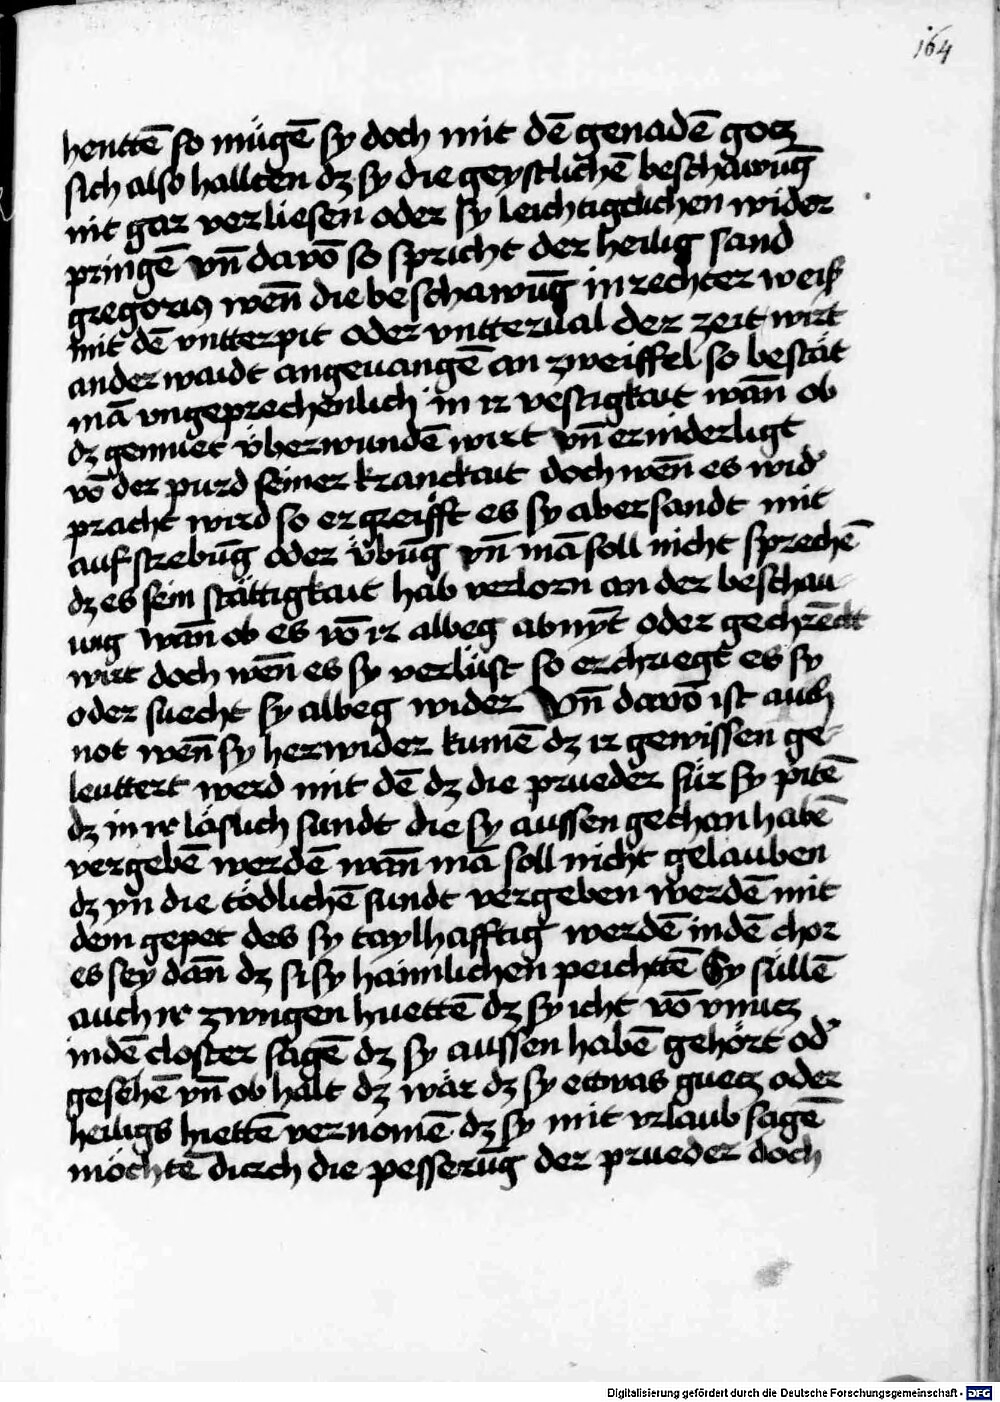 164
henttē so mügē sy doch mit dē genadē gotz
sich also hallten dz sy die geystlichē beschawūg
nit gar verliesen oder sy leichtigclichen wider
pringē vn̄ davō so spricht der heilig sand
gregorius wen̄ die beschawūg in rechter weiß
mit dē vntterpit oder vntterual der zeit wirt
ander waidt angeuangē an zweiffel so bestät
mā vngeprechenlich in ir vestigkait wan̄ ob
dz gemuet überwundē wirt vn̄ erniderligt
vō der purd seiner kranckait doch wen̄ es wid
pracht wird so ergreifft es sy abersandt mit
aufstrebūg oder übūg vn̄ mā soll nicht sprechē
dz es sein stättigkait hab verlorn an der beschau-
ung wan̄ ob es vō ir albeg abnẏt oder gechrēckt
wirt doch wen̄ es sy verlüst so erchriegt es sy
oder suecht sy albeg wider Vn̄ davō ist auch
not wen̄ sy herwider kumē dz ir gewissen ge-
leuttert werd mit dē dz die prueder für sy pitē
dz in ir läslich sundt die sy aussen gethon habē
vergebē werdē wan̄ mā soll nicht gelauben
dz yn die tödlichē sundt vergeben werdē mit
dem gepet des sy taylhafftig werdē in dē chor
es sey dan̄ dz si sy haimlichen peichttē Sy süllē
auch ir zwngen huettē dz sy icht vō vnutz
in dē closter sagē dz sy aussen habē gehört od
gesehē vn̄ ob halt dz wär dz sy etwas guetz oder
heiligs hiettē vernomē dz sy mit vrlaub sagē
möchtē durch die pesserūg der prueder doch
Digitalisierung gefördert durch die Deutsche Forschungsgemeinschaft - DFG